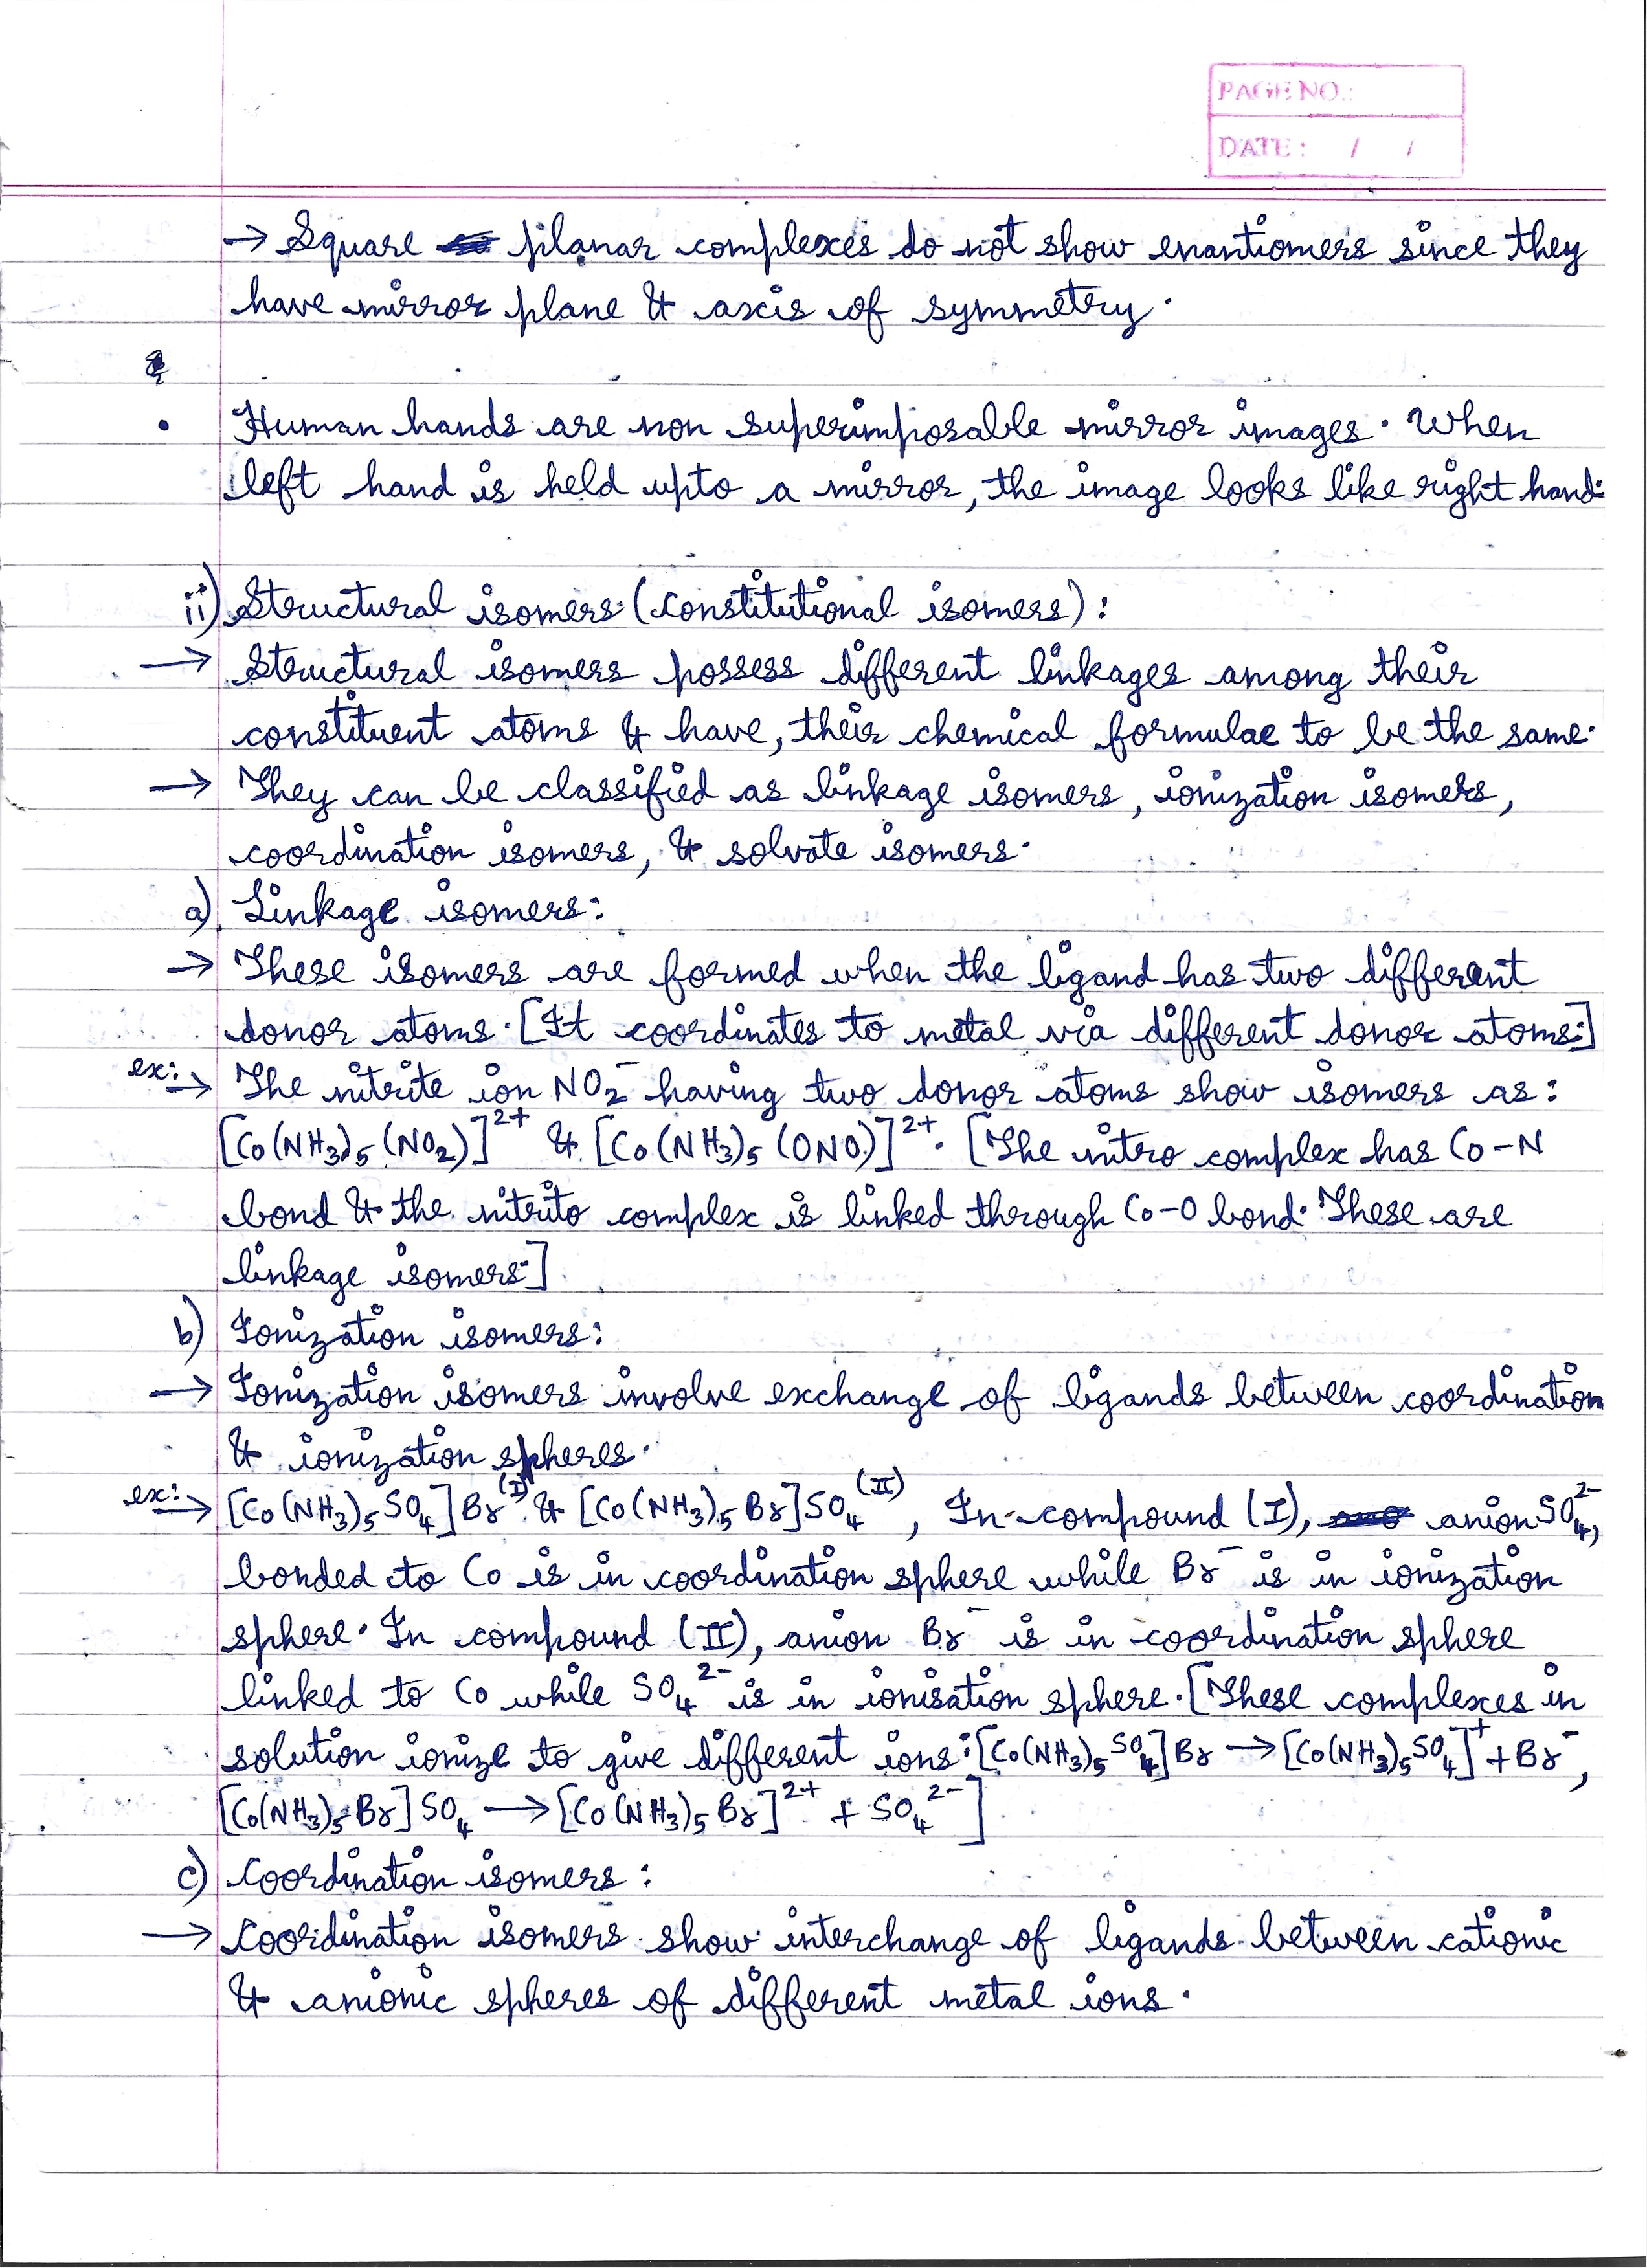 PAGE NO.:
DATE: / /
→ Square planar complexes do not show enantiomers since they
have mirror plane & axis of symmetry.
• Human hands are non superimposable mirror images. When
left hand is held upto a mirror, the image looks like right hand.
ii) Structural isomers (constitutional isomers):
→ Structural isomers possess different linkages among their
constituent atoms & have, their chemical formulae to be the same.
→ They can be classified as linkage isomers, ionization isomers,
coordination isomers, & solvate isomers.
a) Linkage isomers:
→ These isomers are formed when the ligand has two different
donor atoms. [It coordinates to metal via different donor atoms.]
ex:→ The nitrite ion NO₂⁻ having two donor atoms show isomers as:
[Co(NH₃)₅(NO₂)]²⁺ & [Co(NH₃)₅(ONO)]²⁺. [The nitro complex has Co-N
bond & the nitrito complex is linked through Co-O bond. These are
linkage isomers.]
b) Ionization isomers:
→ Ionization isomers involve exchange of ligands between coordination
& ionization spheres.
ex:→ [Co(NH₃)₅SO₄]Br (I) & [Co(NH₃)₅Br]SO₄ (II), In compound (I), anion SO₄²⁻,
bonded to Co is in coordination sphere while Br⁻ is in ionization
sphere. In compound (II), anion Br⁻ is in coordination sphere
linked to Co while SO₄²⁻ is in ionisation sphere. [These complexes in
solution ionize to give different ions: [Co(NH₃)₅SO₄]Br → [Co(NH₃)₅SO₄]⁺ + Br⁻,
[Co(NH₃)₅Br]SO₄ → [Co(NH₃)₅Br]²⁺ + SO₄²⁻]
c) Coordination isomers:
→ Coordination isomers show interchange of ligands between cationic
& anionic spheres of different metal ions.